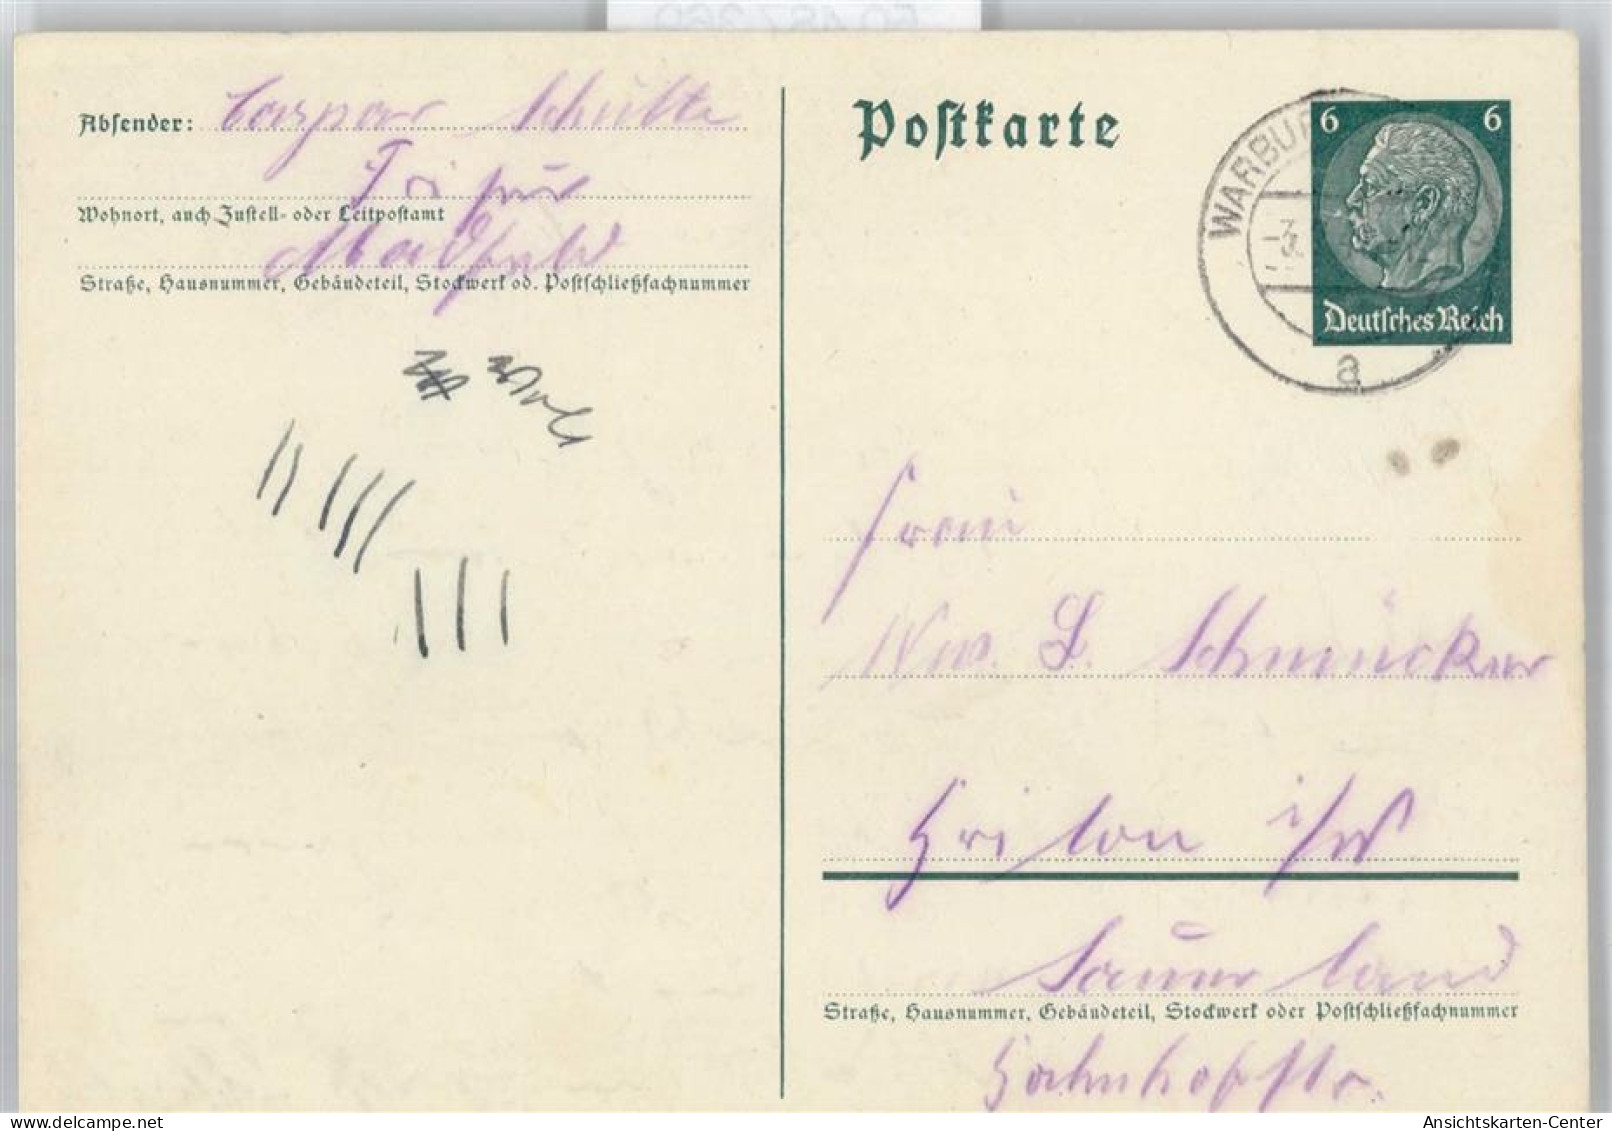 Absender: Caspar Schulte
Wohnort, auch Zustell- oder Leitpostamt
Straße, Hausnummer, Gebäudeteil, Stockwerk od. Postschließfachnummer
Postkarte
6 6
Deutsches Reich
WARBU
a
Frau
Ww. L. Schmücker
Brilon i/W
Sauerland
Straße, Hausnummer, Gebäudeteil, Stockwerk oder Postschließfachnummer
Bahnhofstr.
Ansichtskarten-Center